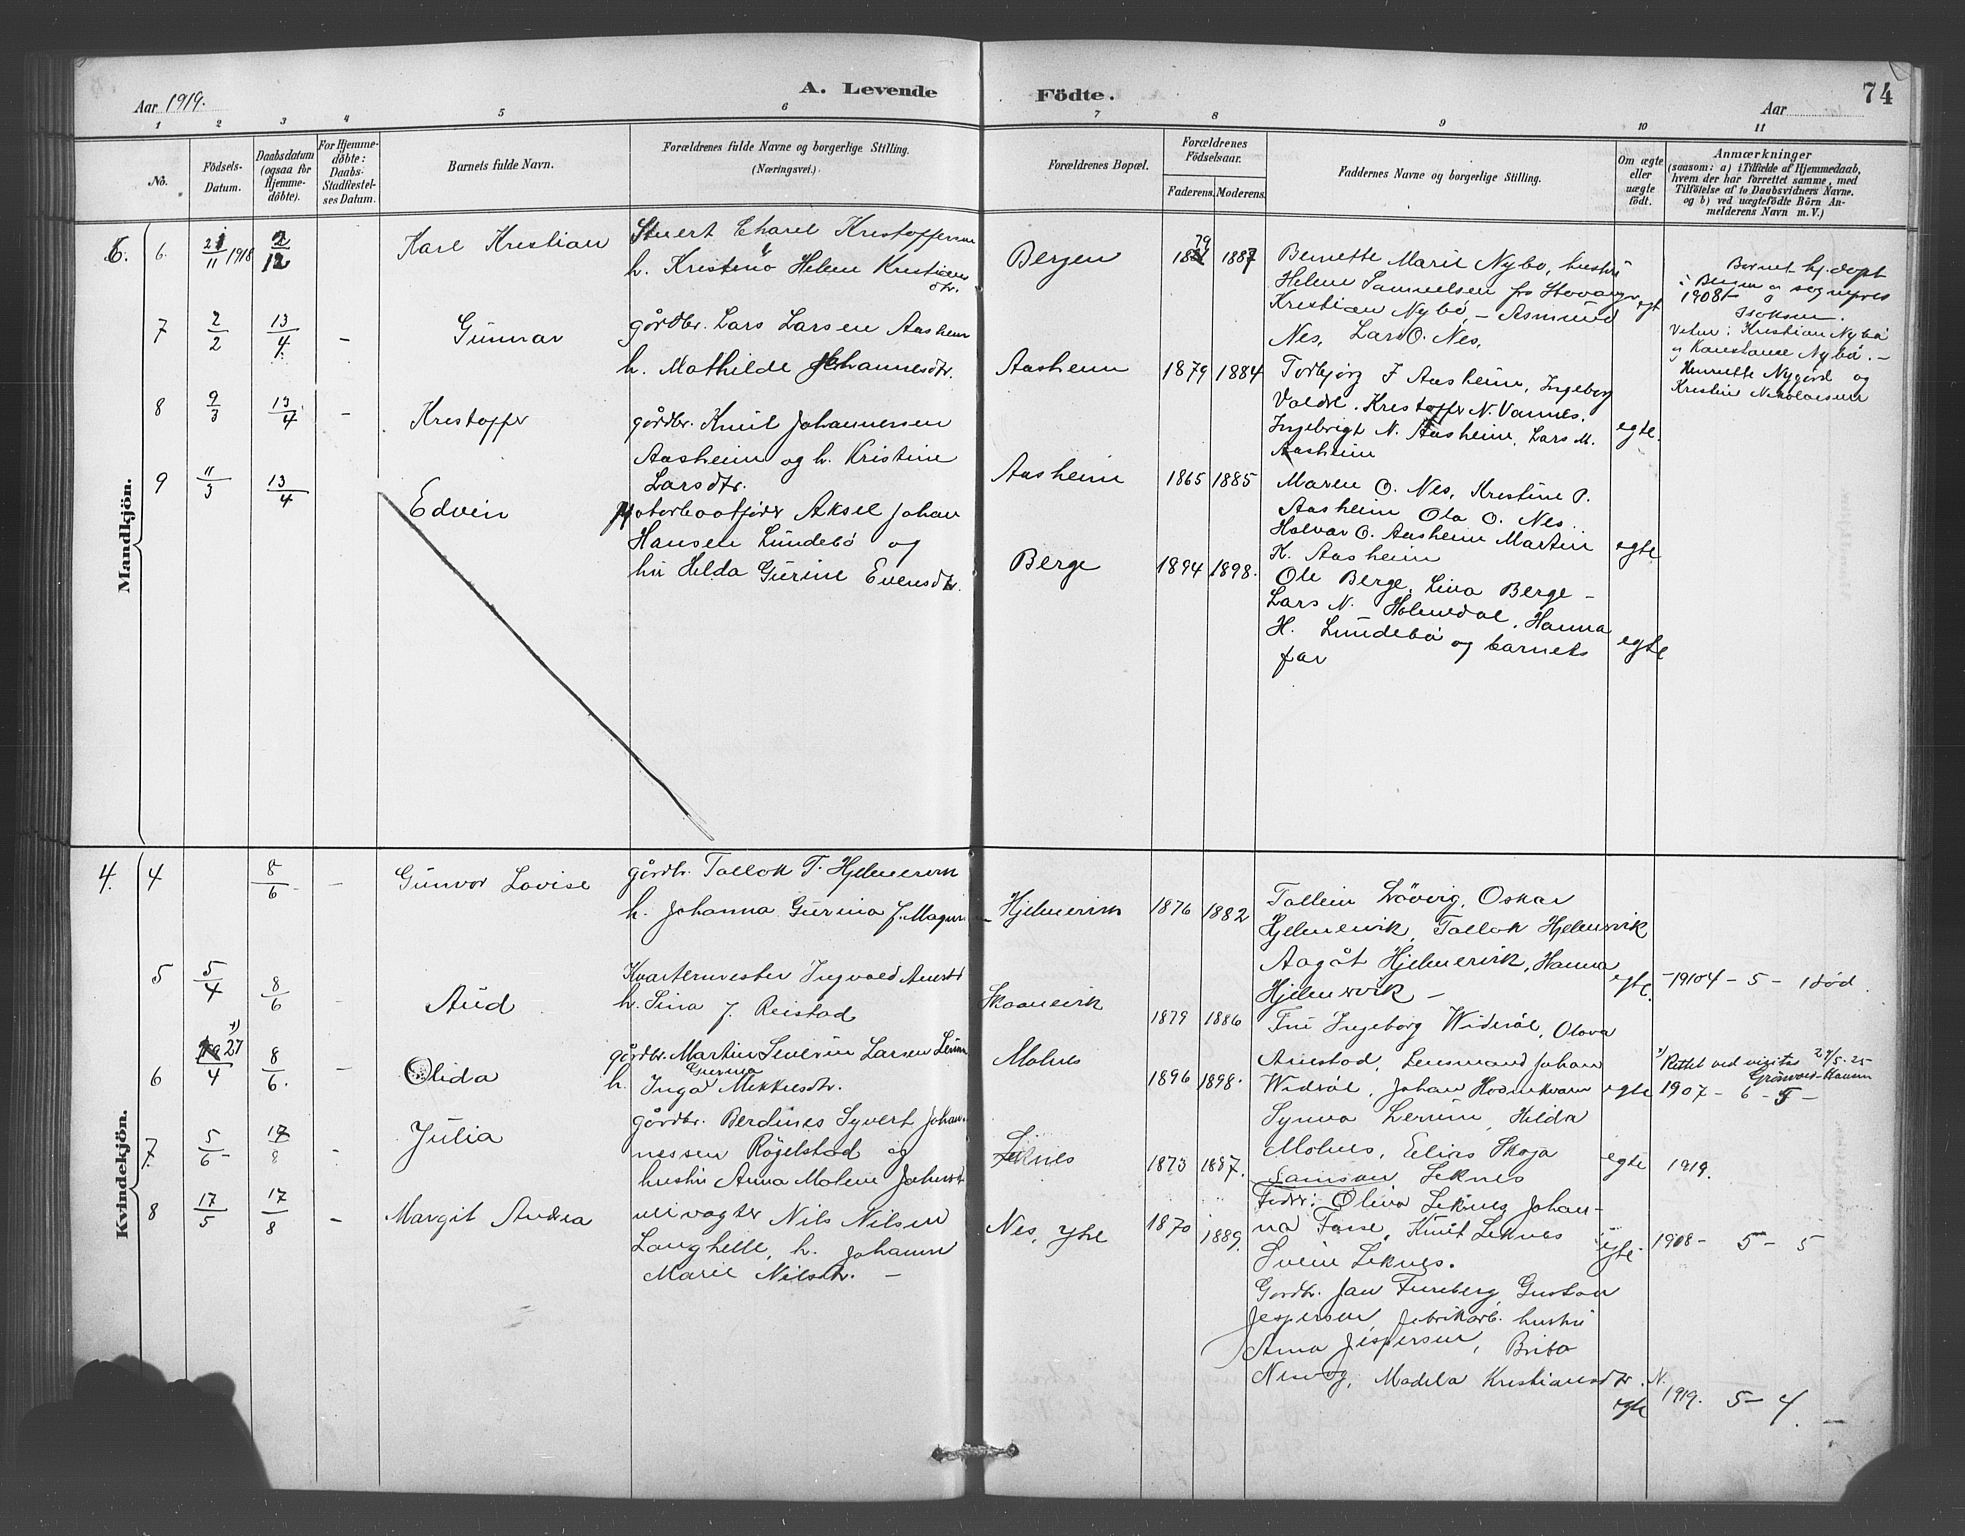 Aar 1919.
A. Levende
Födte.
Aar
74
1 2 3 4 5 6 7 8 9 10 11
No.
Födsels-
Datum.
Daabsdatum
(ogsaa for
Hjemme-
döbte).
For Hjemme-
döbte:
Daabs-
Stadfæstel-
ses Datum.
Barnets fulde Navn.
Forældrenes fulde Navne og borgerlige Stilling.
(Næringsvei.)
Forældrenes Bopæl.
Forældrenes
Födselsaar.
Faderens. Moderens.
Faddernes Navne og borgerlige Stilling.
Om ægte
eller
uægte
födt.
Anmærkninger
(saasom: a) i Tilfælde af Hjemmedaab,
hvem der har forrettet samme, med
Tilföielse af to Daabsvidners Navne.
og b) ved uægtefödte Börn An-
melderens Navn m. V.)
Mandkjön.
6.
6. 21/11 1918 2/12
Karl Kristian
Kristoffersen
h. Kristine Helene
dtr.
Bergen
79 1887
Bernette Marie Nybø, hustru
Helene Samuelsen fra Stavanger
Kristian Nybø, Asmund
Nes, Lars O. Nes,
egt
Barnet hj.døpt
i Bergen av sognepres
1908
Vitner: Kristian Nybø
og Konstanse Nybø. -
Henrette Nygård og
Kristine Nikolaisen
7 2/2 13/4 -
Gunnar
gårdbr. Lars Larsen Aasheim
h. Mathilde Johannesdtr.
Aasheim
1879 1884
Torbjørg J Aasheim, Ingeborg
Valdre. Kristoffer N. Vannes.
Ingebrigt N. Aasheim. Lars M.
Aasheim
egte.
8 9/3 13/4 -
Kristoffer
gårdbr. Knut Johannessen
Aasheim og h. Kristine
Larsdtr.
Aasheim
1865 1885
Maren O. Nes, Kristine P.
Aasheim Ola O. Nes.
Halvar O. Aasheim Martin
K. Aasheim
egte
9 11/3 13/4
Edvin
Motorbaatfører Aksel Johan
Hansen Lundebø og
hu Helda Gurine Evensdtr.
Berge
1894 1898.
Ole Berge, Lina Berge -
Lars N. Holmedal, Hanna
H. Lundebø og barnets
far
egte
Kvindekjön.
4.
4 8/6 -
Gunvor Lovise
gårdbr. Tallak T. Hjelmervik
h. Johanna Gurina J. Magnusen
Hjelmervik
1876 1882
Løvvig, Oskar
Hjelmervik, Tallak Hjelmervik
Aagåt Hjelmervik, Hanna
Hjelmervik -
egte.
- 19104 - 5 - 1 død.
5 5/4 8/6 -
Aud
Kvartermester Ingvald
h. Sina J. Reistad
Skaanevik
1879 1886
Fru Ingeborg Widsøl, Olava
Lensmand Johan
Widsøl, Johan
egte
1907 - 6 - 5 -
6 27/4 8/6. -
Olida
gårdbr. Martin Severin Larsen
Gurina
h. Inga Mikkelsdtr.
Molnes
1896 1898.
Synva Lerum, Helda
Molnes, Elias Skoga
Samson Leknes
egte
Rettet ved visitas 24/5-25
Grönvold-Hansen
1919.
7. 5/6 - 17/8 -
Julia
gårdbr. Berdines Syvert Johan-
nessen Røgelstad og
hustru Anna Malene
Leknes
1873 1887.
Fedre: Olina Leknes, Johan-
na Fosse, Knut Leknes
Svein Leknes.
egte
1908 - 5 - 5
8 17/5 17/8 -
Margit Andrea
veivogter Nils Nilsen
Langhelle, h. Johanne
Marie Nilsdtr. -
Nes, ytre
1870 1889.
Gardbr. Jan Fureberg, Gustav
Jespersen, fabrikarb. hustru
Anna Jespersen, Brita
Madela Kristiansdtr. N.
egte
1919. 5 - 4. -